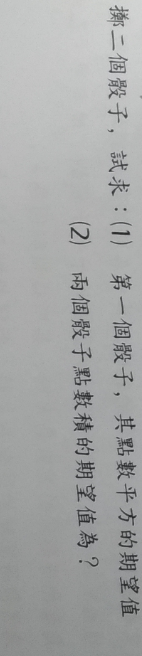 擲二個骰子，試求：(1) 第一個骰子，其點數平方的期望值
(2) 兩個骰子點數積的期望值為？